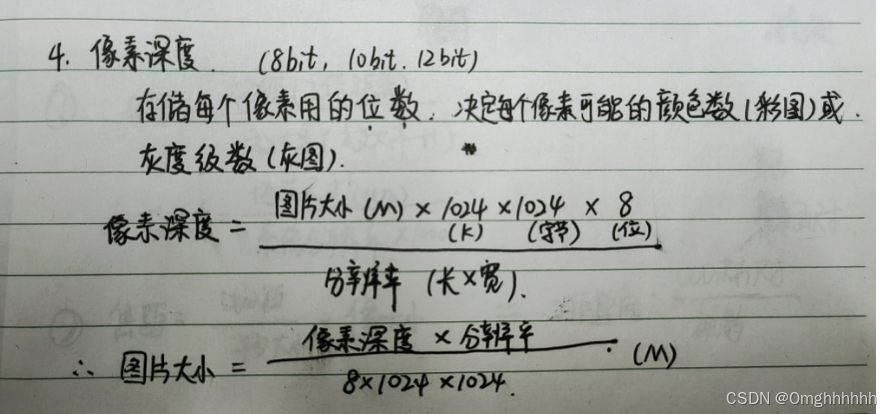 4. 像素深度. (8bit, 10bit. 12bit)
存储每个像素用的位数. 决定每个像素可能的颜色数(彩图)或.
灰度级数(灰图).
像素深度 = 图片大小 (M) × 1024 × 1024 × 8
(K) (字节) (位)
分辨率 (长×宽).
∴ 图片大小 = 像素深度 × 分辨率 (M)
8×1024×1024.
CSDN @Omghhhhhh